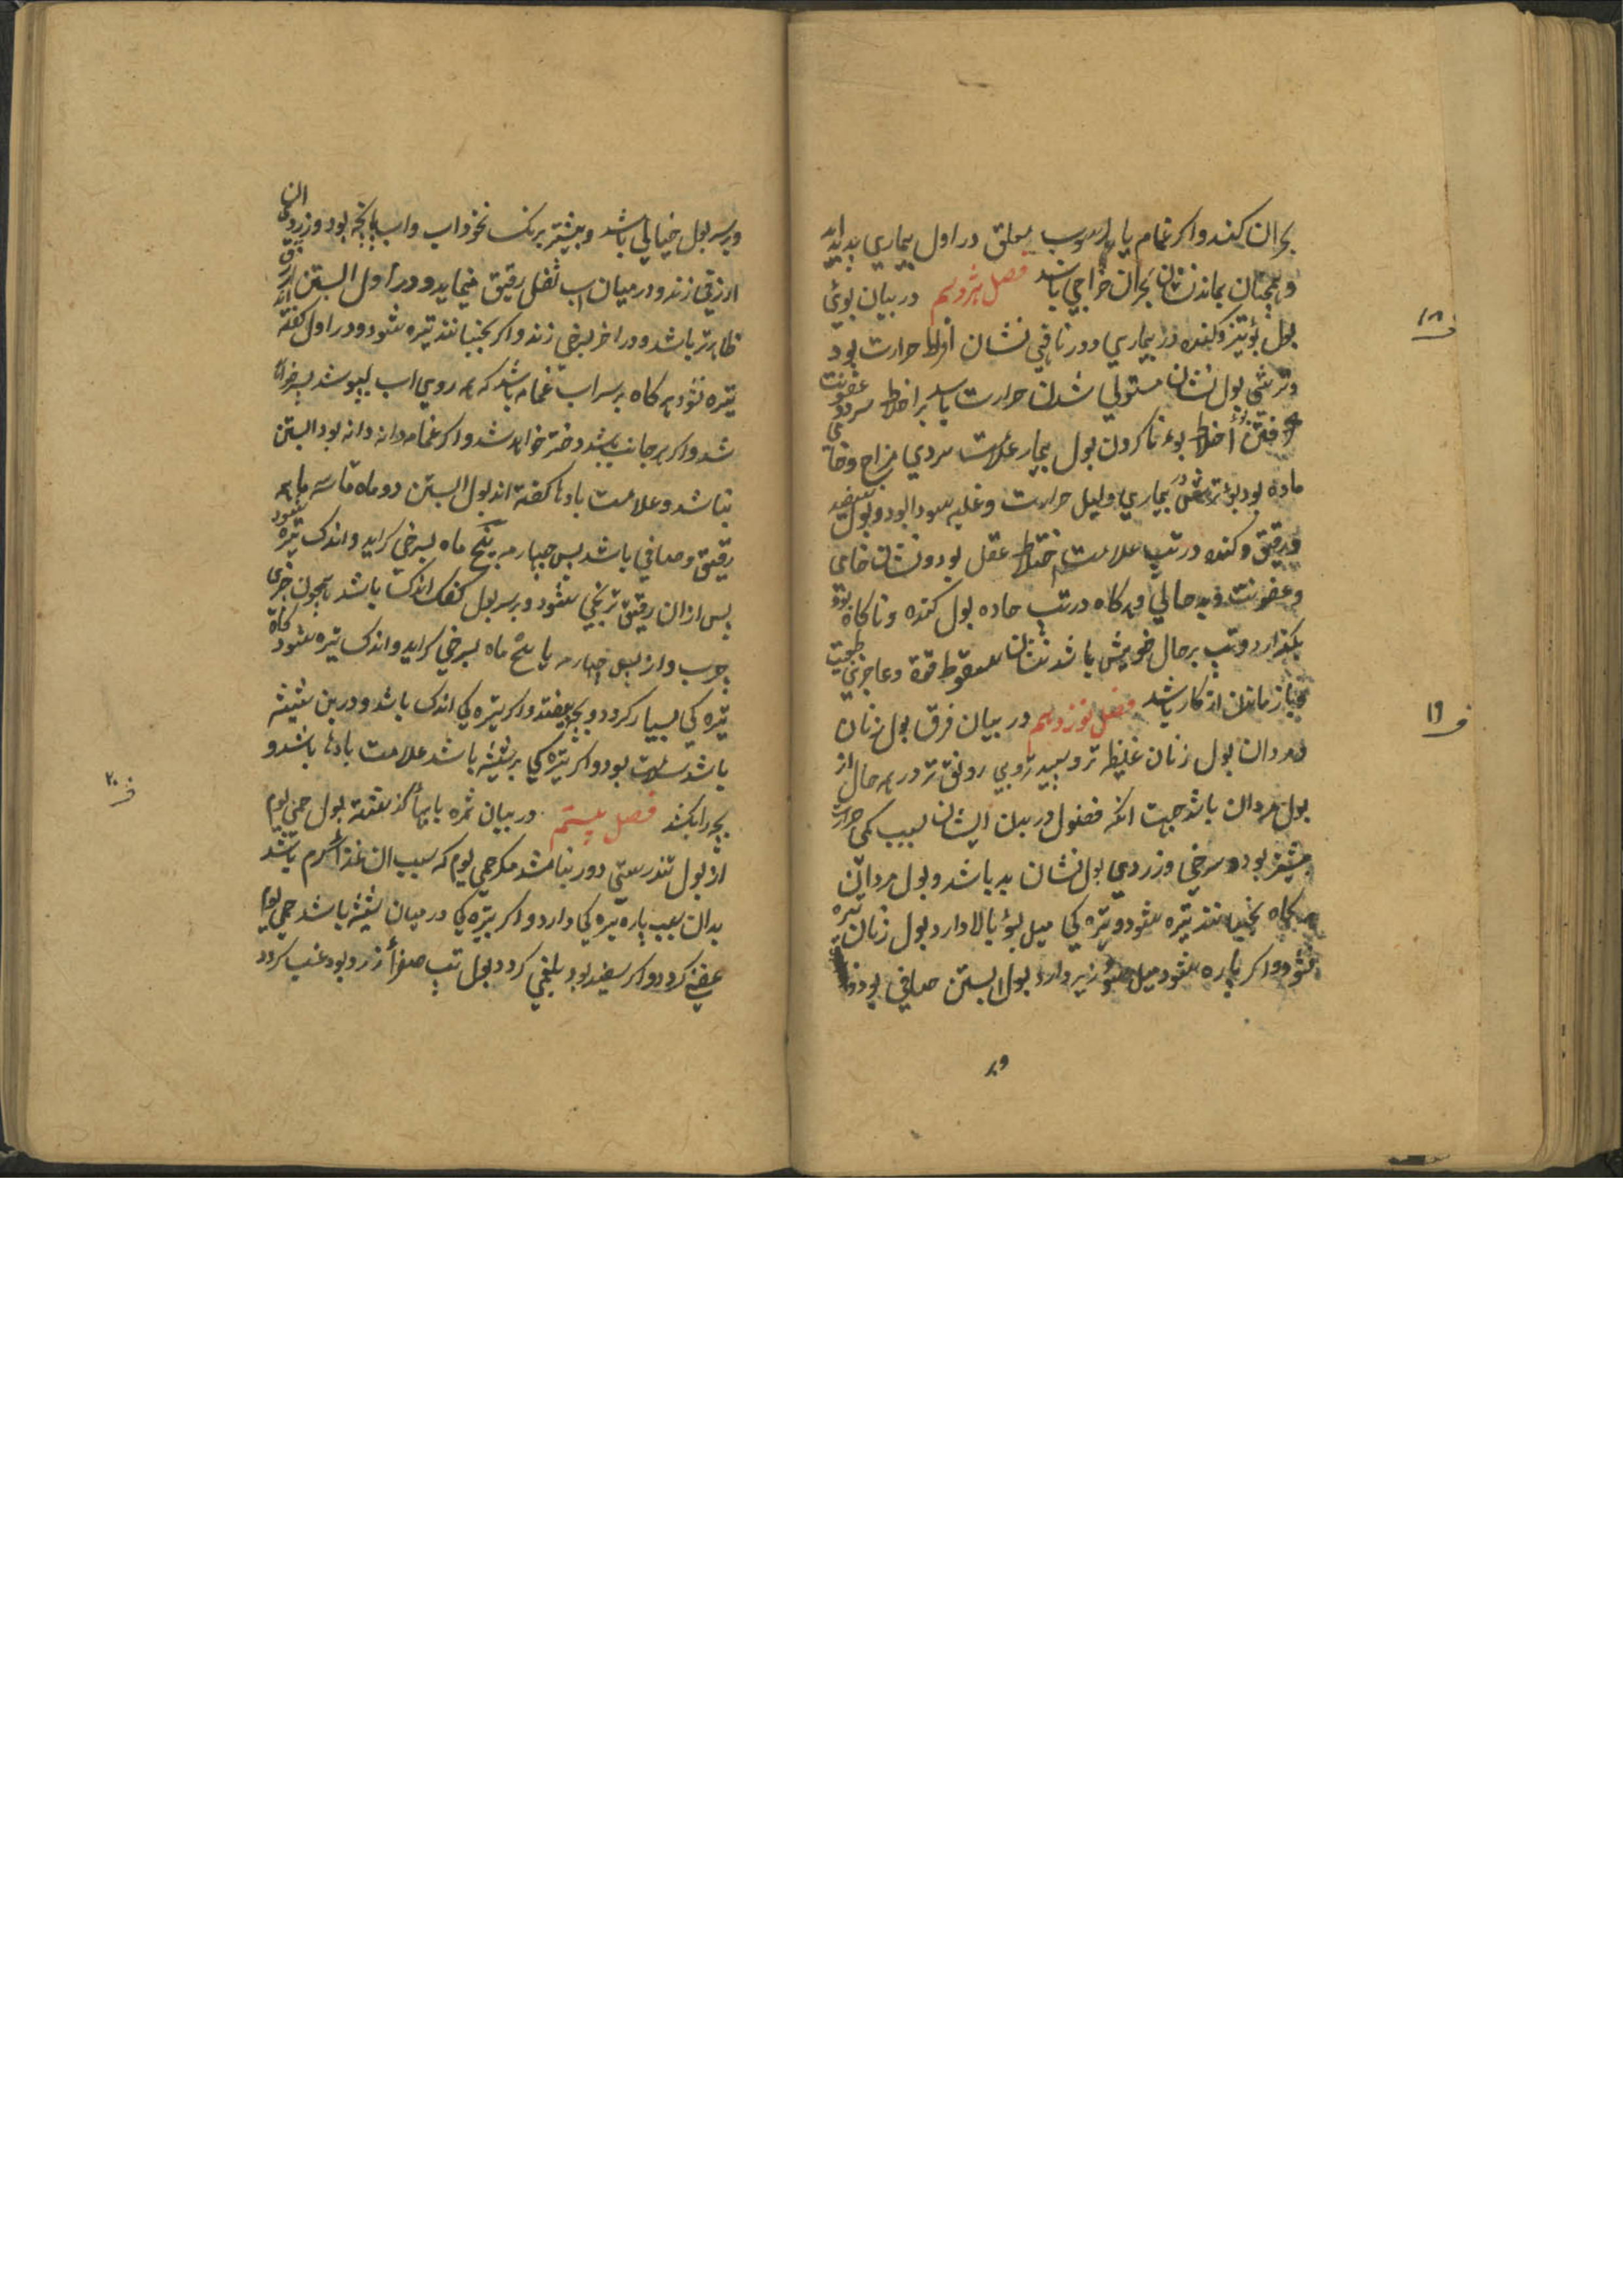 بحران کند و اکر غمام یا رسوب معلق در اول بیماری پدید اید
و همچنان بماند نشان بحران خراجی باشد فصل هژدهم در بیان بوی
بول بوی تیز و کنده در بیماری دور ناقی نشان افراط حرارت بود
و ترشی بول نشان مستولی شدن حرارت باشد بر اخلاط سرد و عفونت
اخلاط بوی ناکردن بول بیمار علامت سردی مزاج و خامی
ماده بود بوی ترشی در بیماری دلیل حرارت و غلبه سودا بود و بول سفید
و رقیق و کنده در تب علامت اختلاط عقل بود و نشان خامی
و عفونت و بدحالی و هرکاه در تب حاده بول کنده و ناکاه بوی
بکذارد و تب بر حال خویش باشد نشان سقوط قوة و عاجزی طبیعت
باز ماندن از کار باشد فصل نوزدهم در بیان فرق بول زنان
و مردان بول زنان غلیظ تر و سپیدتر و بی رونق تر در همه حال از
بول مردان باشد جهت انکه فضول در بدن ایشان بسبب کمی حرارت
بیشتر بود و سرخی و زردی بول نشان بد باشد و بول مردان
هرکاه بجنبانند تیره شود و تیره کی میل بسوی بالا دارد بول زنان تیره
نشود و اکر پاره شود میل بسوی زیر دارد بول ابستن صافی بود
ف ۱۸
ف ۱۹
و بر
و بر سر بول خیالی باشد و بیشتر برنک نخود اب و اب پاچه بود و زردی ان
ازرقی زند و در میان اب ثفلی رقیق نماید و در اول ابستن ازرق
ظاهرتر باشد و در اخر بسرخی زند و اکر بجنبانند تیره شود و در اول کفته اند
تیره نشود هرکاه بر سر اب غمامه باشد که همه روی اب بپوشد پسر خواهد
شد و اکر بر جانب باشد دختر خواهد شد و اکر غمامه دانه دانه بود ابستن
نباشد و علامت بادها کفته اند بول ابستن دو ماه تا سه ماهه
رقیق و صافی باشد پس چهارمه پنج ماه بسرخی کراید و اندک تیره شود
پس ازان رقیق ترنجی شود و بر سر بول کفک اندک باشد همچون چیزی
چرب و از پس چهارمه یا پنج ماه بسرخی کراید و اندک تیره شود کاه
تیره کی بسیار کردد و بچه بیفتد و اکر تیره کی اندک باشد و در بن شیشه
باشد سلامت بود و اکر تیره کی بر شیشه باشد علامت بادها باشد و
بچه را بکشد فصل بیستم در بیان ثمره بابها کذشته بول حمی یوم
از بول تندرستی دور نباشد مکر حمی یوم که سبب ان غذا کرم باشد
بدان سبب پاره تیره کی دارد و اکر تیره کی در میان شیشه باشد حمی یوم
عفنی کردد و اکر سفید بود بلغمی کردد بول تب صفرا زرد بود غب کردد
ف ۲۰